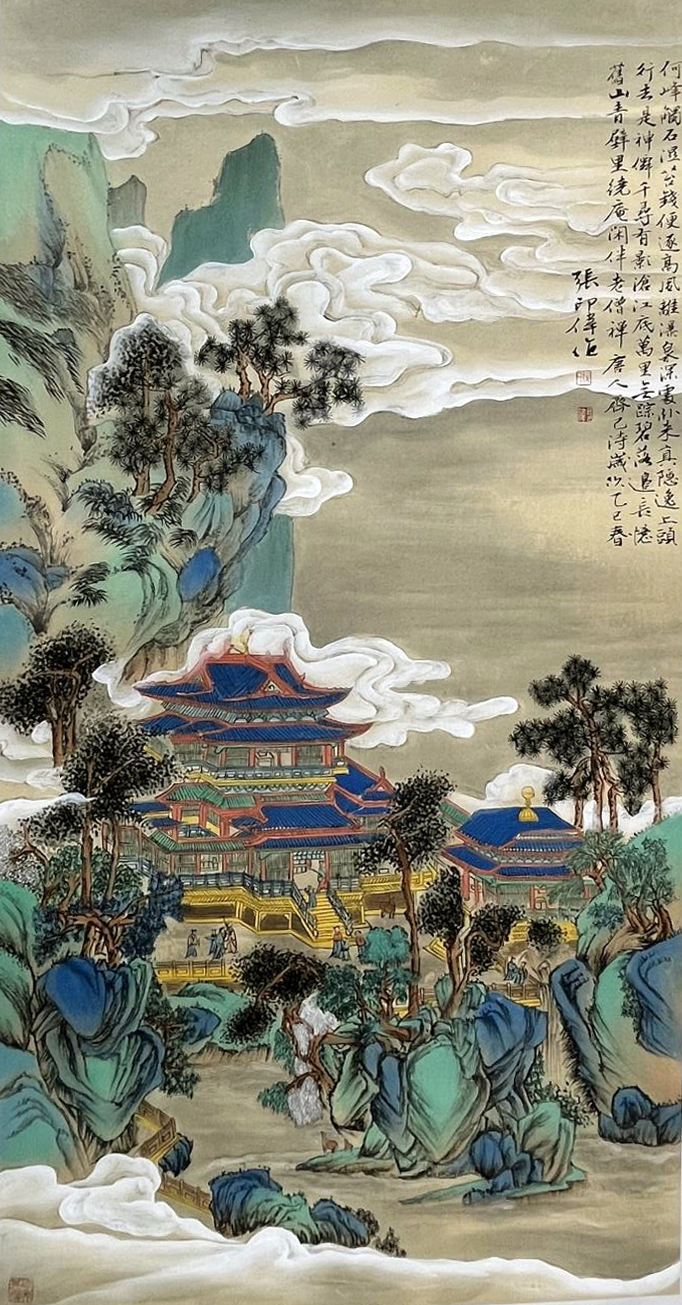 何峰觸石濕苔錢便逐高風離瀑泉深處卧来真隱逸上頭
行去是神僊千尋有影滄江底萬里無踪碧落邊長憶
舊山青壁里繞庵閑伴老僧禪 唐人齊己詩歲次乙巳春
張印偉作